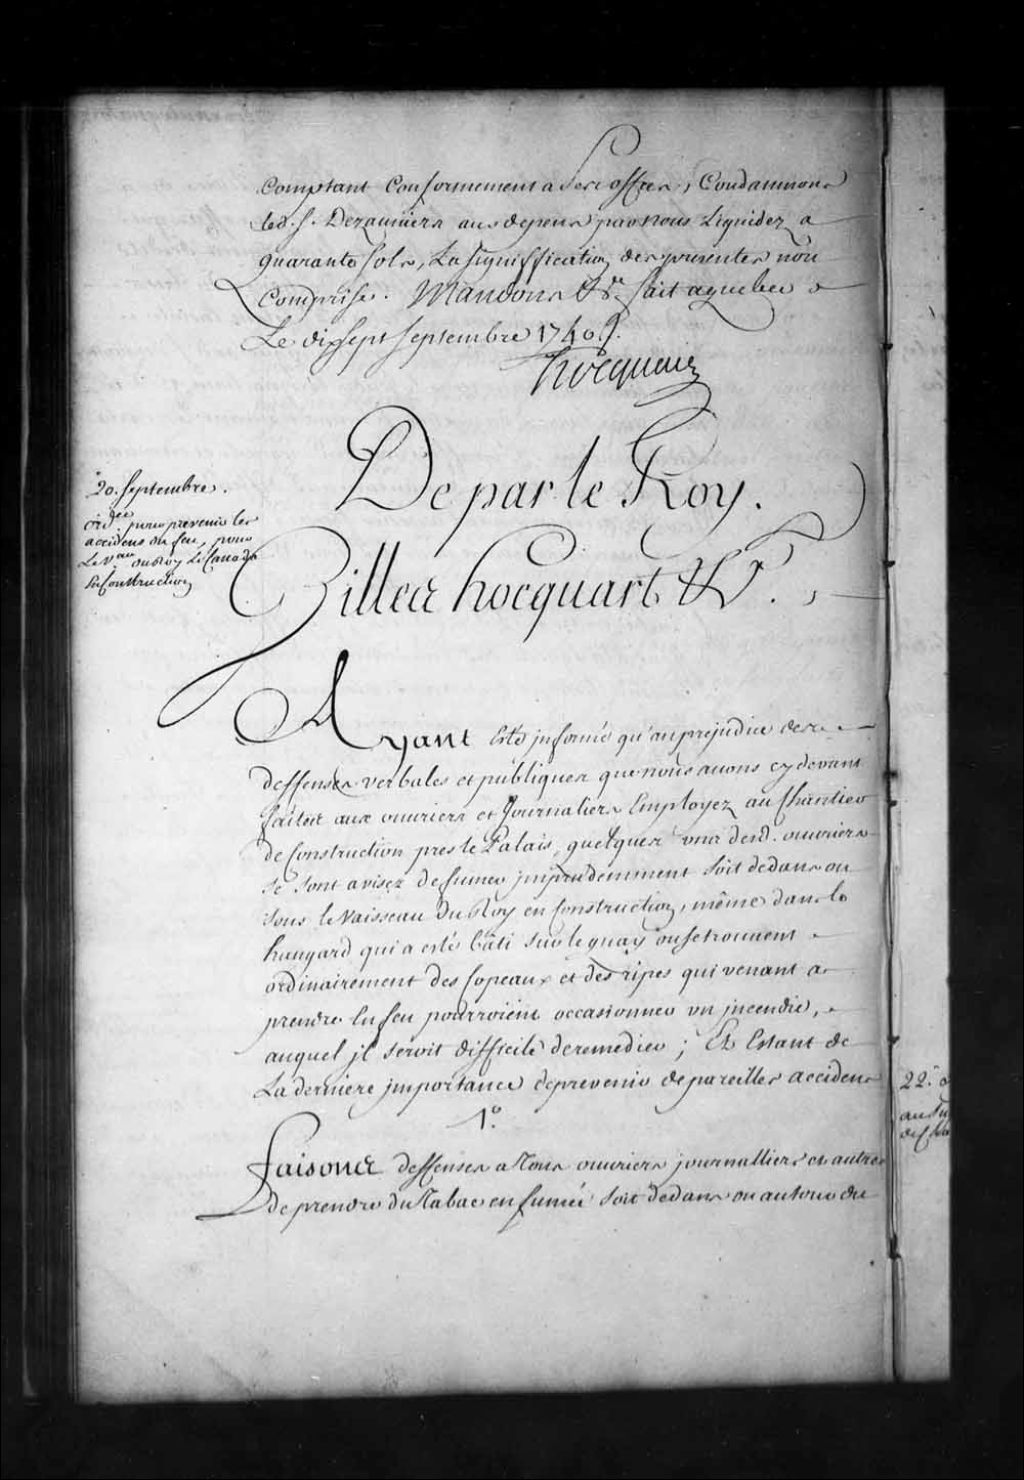 comptant conformement a Ses offres, Condamnons
led. S. Dezauniers aux depens par nous Liquidez a
quarante sols, La signiffication des presentes non
Comprise. Mandons &c. fait a quebec
Le dixsept septembre 1740.
hocquart
20. septembre.
ord.ce pour prevenir les
accidens du feu, pour
Le V.au du Roy le Canada
En Construction
De par le Roy.
Gilles hocquart &c.
Ayant Esté jnformé qu'au prejudice des
deffenses verbales et publiques que nous avons cy devant
faites aux ouvriers et Journaliers Employez au Chantier
de Construction pres le Palais, quelques uns desd. ouvriers
se sont avisez de fumer jmprudemment soit dedans ou
sous le Vaisseau du Roy en Construction, même dans le
hangard qui a esté bâti sur le quay ou se trouvent
ordinairement des Copeaux et des ripes qui venant a
prendre En feu pourroient occasionner un jncendie,
auquel jl seroit difficile de remedier ; Et Estant de
La derniere jmportance de prevenir de pareilles accidens
1.°
faisons deffenses a Tous ouvriers journalliers et autres
de prendre du Tabac en fumée soit dedans ou autour du
22.
au